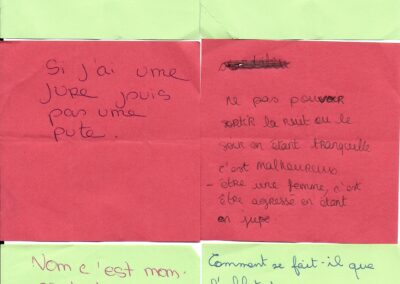 Si j'ai une
jupe je suis
pas une
pute.
ne pas pouvoir
sortir la nuit ou le
soir en étant tranquille
c'est malheureux
- être une femme, c'est
être agressé en étant
en jupe.
Non c'est non.
Comment se fait-il que